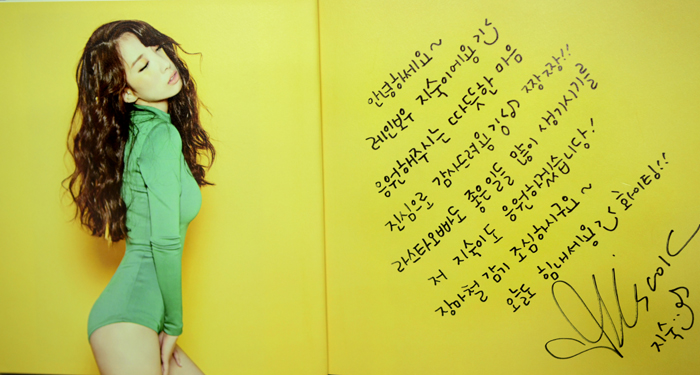 안녕하세요~
레인보우 지숙이에용
응원해주시는 따뜻한 마음
진심으로 감사드려용 짱짱!!
라스타오빠도 좋은일들 많이 생기시기를
저 지숙이도 응원하겠습니당!
장마철 감기 조심하시구요~
오늘도 힘내세용 화이팅!!
지숙